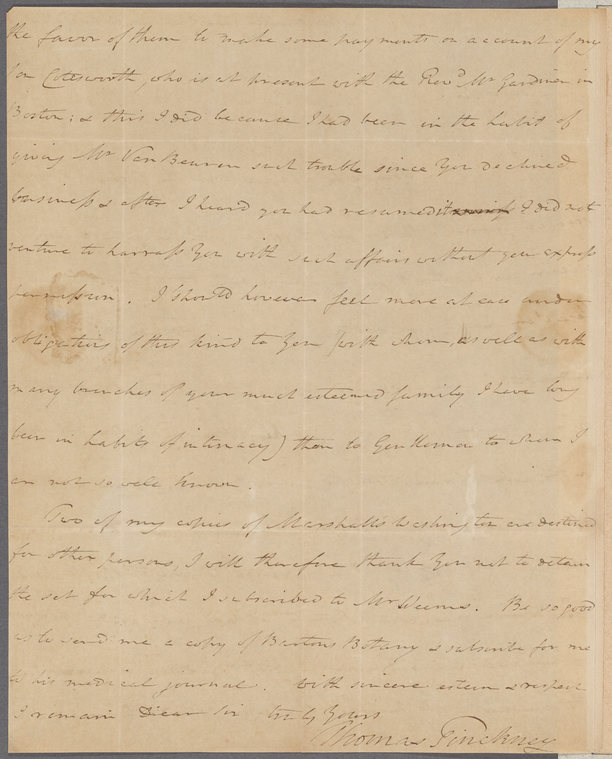 the favor of them to make some payments on account of my
son Cotesworth, who is at present with the Revd. Mr Gardiner in
Boston; & this I did because I had been in the habit of
giving Mr Van Beuren such trouble since You declined
business & after I heard you had resumed it I did not
venture to harrass You with such affairs without your express
permission. I should however feel more at ease under
obligations of this kind to You (with whom, as well as with
many branches of your much esteemed family I have long
been in habits of intimacy) than to Gentlemen to whom I
am not so well known.
Two of my copies of Marshall's Washington are destined
for other persons, I will therefore thank You not to detain
the set for which I subscribed to Mr Weems. Be so good
as to send me a copy of Bartons Botany & subscribe for me
to his medical journal. With sincere esteem & respect
I remain Dear Sir truly Yours
Thomas Pinckney